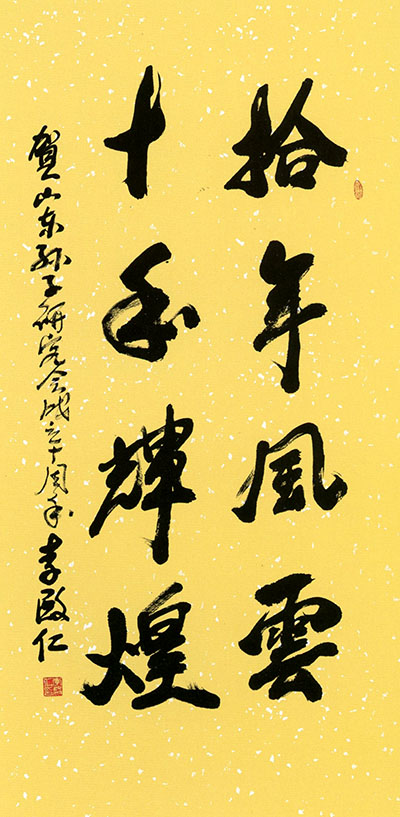 拾年風雲
十年輝煌
賀山东孙子研究会成立十周年 李殿仁